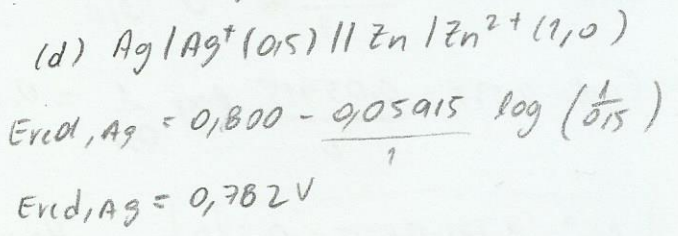 (d) Ag / Ag⁺ (0,5) // Zn / Zn²⁺ (1,0)
Ered, Ag = 0,800 - 0,05915/1 log (1/0,5)
Ered, Ag = 0,782 V